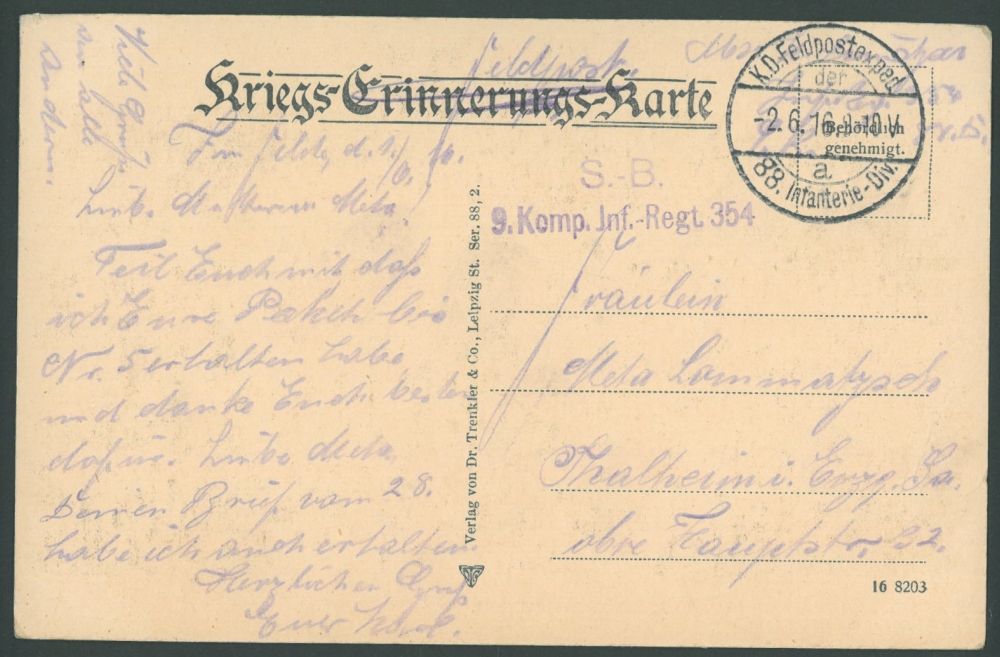 Feldpost.
Kriegs-Erinnerungs-Karte
K.D. Feldpostexped.
der
-2.6.16. 9-10 V.
a
88. Infanterie-Div.
Behördlich
genehmigt.
S.-B.
9. Komp. Inf.-Regt. 354
Viele Grüße
an alle
Andern.
Im Felde, d. 1./6.
Liebe Meta.
Teil Euch mit daß
ich Eure Paketch bis
Nr. 5 erhalten habe
und danke Euch besten
dafür. Liebe Meta
Deinen Brief vom 28.
habe ich auch erhalten.
Herzlichen Gruß
Euer
Verlag von Dr. Trenkler & Co., Leipzig St. Ser. 88, 2.
Fräulein
Meta Lommatzsch
Thalheim i. Erzg. Sa.
obre Hauptstr. 32.
16 8203